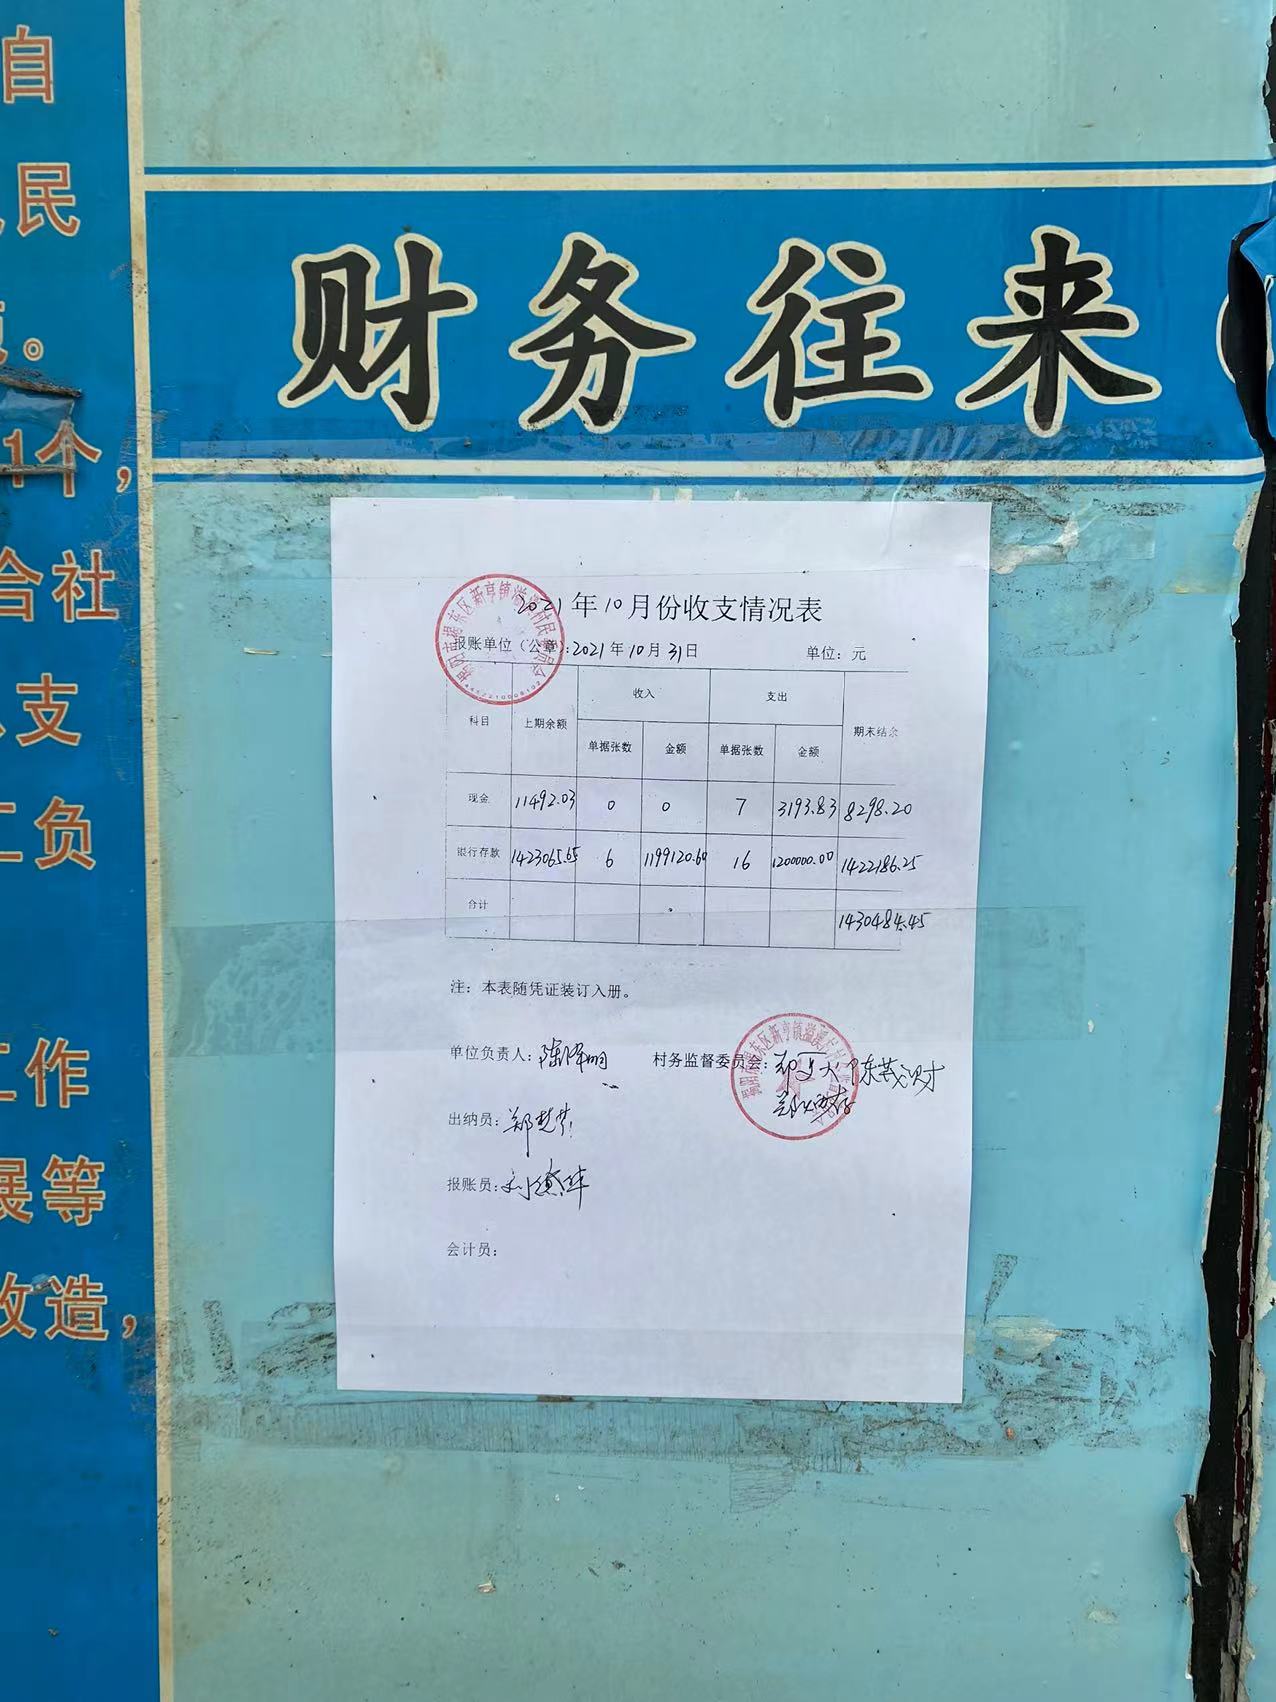 自
民
。
1个，
合社
支
工负
工作
展等
改造，
财务往来
2021年10月份收支情况表
报账单位（公章）：2021年10月31日 单位：元
科目 上期余额 收入 支出 期末结余
单据张数 金额 单据张数 金额
现金 11492.03 0 0 7 3193.83 8298.20
银行存款 1423065.65 6 1199120.60 16 1200000.00 1422186.25
合计 1430484.45
注：本表随凭证装订入册。
单位负责人： 村务监督委员会：
出纳员：
报账员：
会计员：